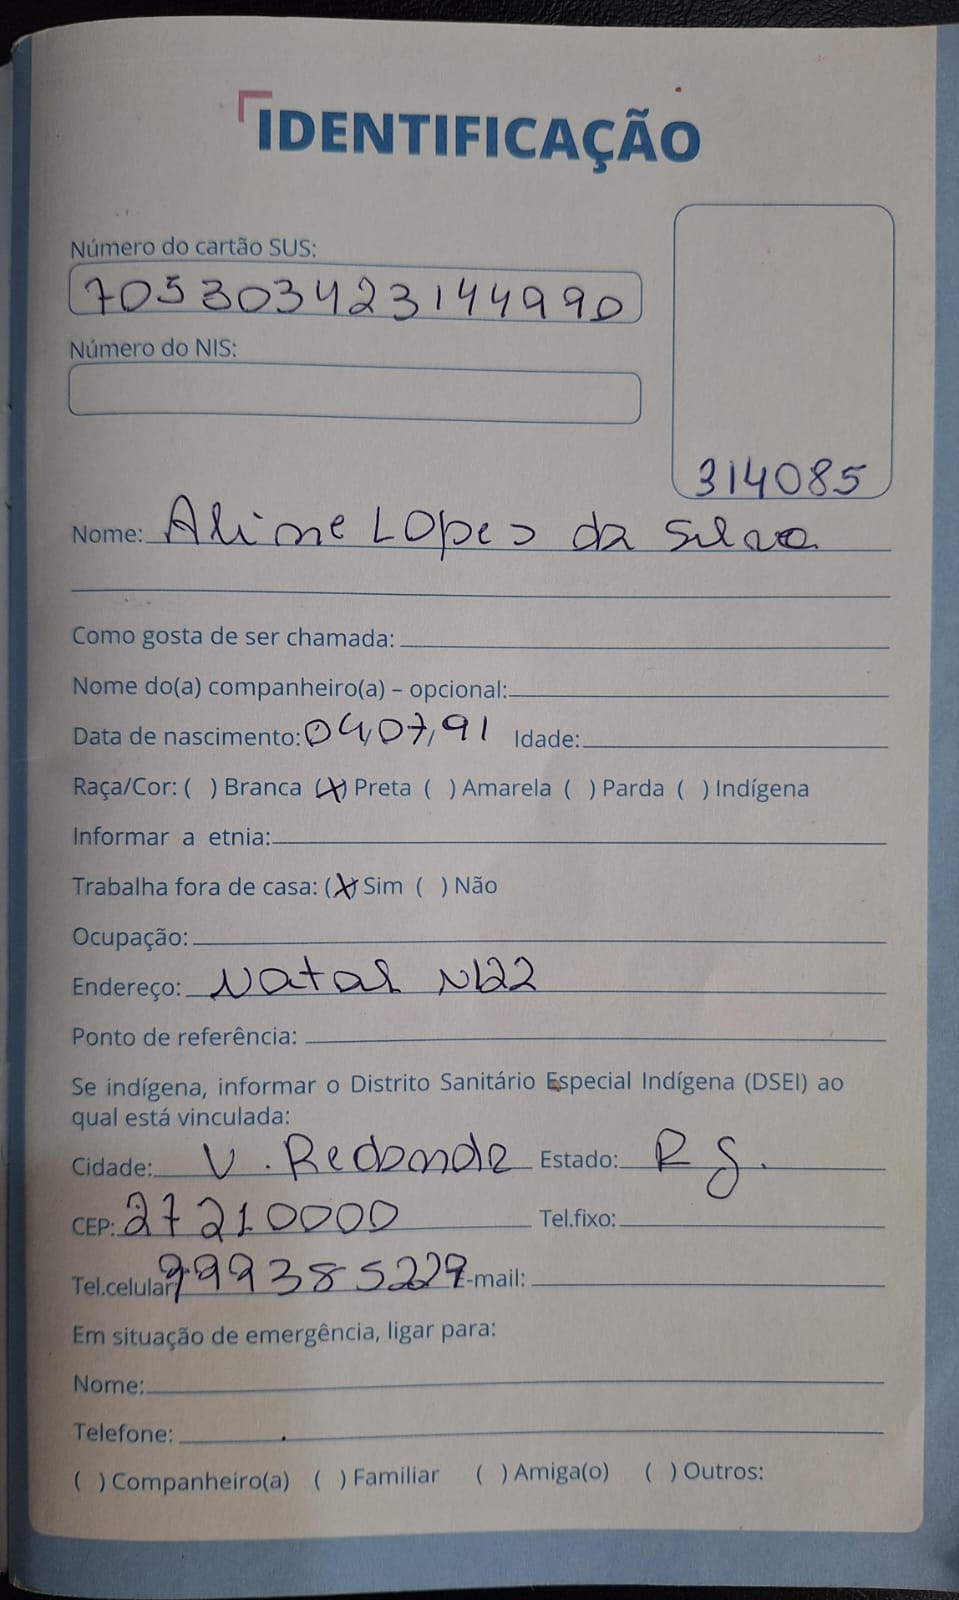 IDENTIFICAÇÃO
Número do cartão SUS:
705303423144990
Número do NIS:
314085
Nome: Aline Lopes da Silva
Como gosta de ser chamada:
Nome do(a) companheiro(a) – opcional:
Data de nascimento: 04,07,91 Idade:
Raça/Cor: ( ) Branca (X) Preta ( ) Amarela ( ) Parda ( ) Indígena
Informar a etnia:
Trabalha fora de casa: (X) Sim ( ) Não
Ocupação:
Endereço: Natal N122
Ponto de referência:
Se indígena, informar o Distrito Sanitário Especial Indígena (DSEI) ao
qual está vinculada:
Cidade: V. Redonda Estado: RJ.
CEP: 27210000 Tel.fixo:
Tel.celular: 999385229 E-mail:
Em situação de emergência, ligar para:
Nome:
Telefone:
( ) Companheiro(a) ( ) Familiar ( ) Amiga(o) ( ) Outros: